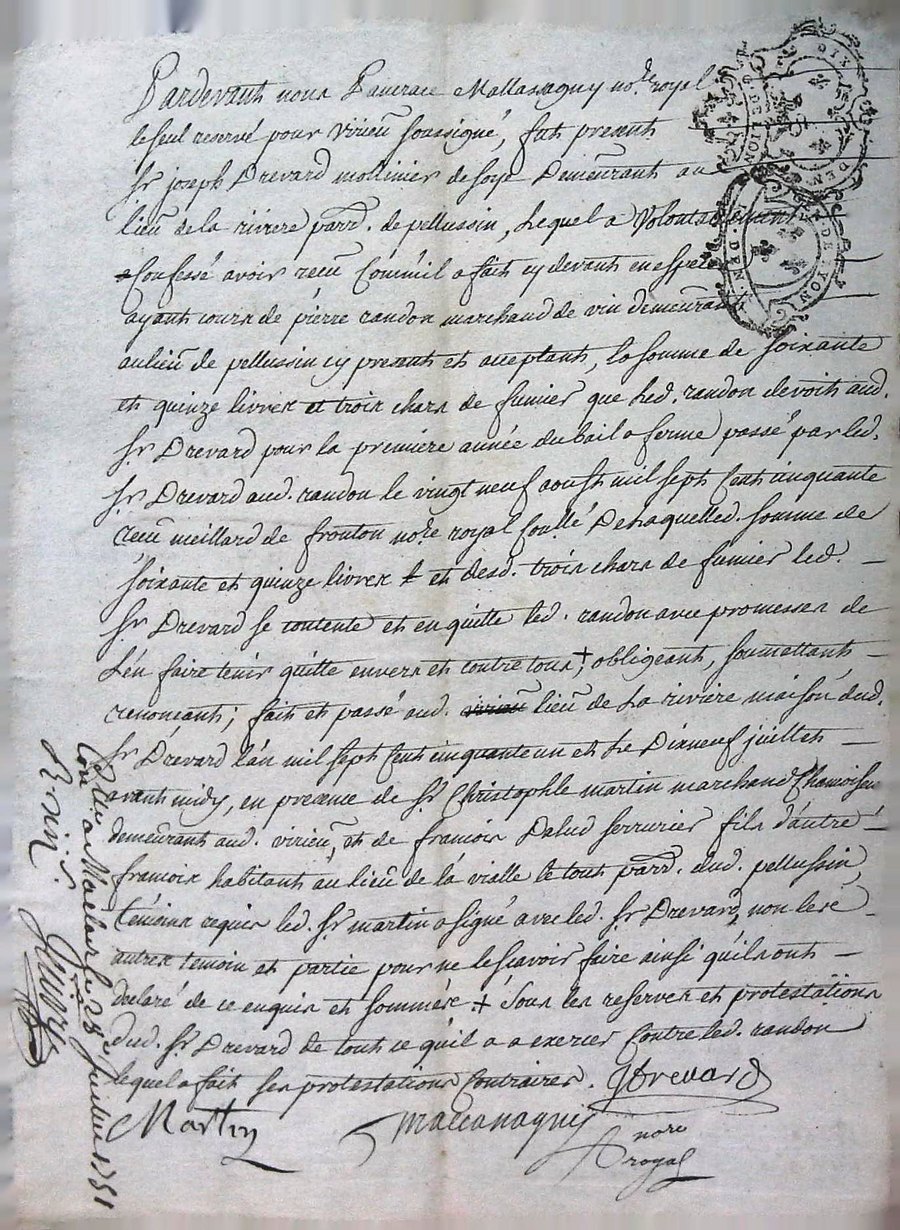 Pardevant nous Pancrace Mallassagny no.re royal
le seul reservé pour virieu soussigné, fut present
Sr joseph Drevard moulinier de soye Demeurant au
lieu de la riviere parr. de pellussin, Lequel a volontairement
Confessé avoir receu Comm'il a fait cy devant en espece
ayant cours de pierre randon marchand de vin demeurant
au lieu de pellussin cy present et acceptant, la somme de soixante
et quinze livres et trois chars de fumier que Led. randon devoit aud.
Sr Drevard pour la premiere année du bail a ferme passé par led.
Sr Drevard aud. randon le vingt neuf aoust mil sept Cent cinquante
receu meillard de fronton no.re royal De Laquelle d. somme de
soixante et quinze livres et desd. trois chars de fumier led.
Sr Drevard se contente et en quitte led. randon avec promesses de
L'en faire tenir quitte envers et contre tous, + obligeant, soumettant
renonçant; fait et passé aud. virieu lieu de La riviere maison dud.
Sr Drevard L'an mil sept Cent cinquante un et Le Dixneuf juillet
avant midy, en presence de Sr Christophle martin marchand Chamoiseur
demeurant aud. virieu, et de francois Palud serrurier fils d'autre
francois habitant au lieu de la vialle le tout parr. dud. pellussin,
temoins requis led. Sr martin a signé avec led. Sr Drevard, non les
autres temoin et partie pour ne le scavoir faire ainsi qu'ils ont
declaré de ce enquis et sommés + sous les reserves et protestations
dud. Sr Drevard de tout ce qu'il a a exercer Contre led. randon
lequel a fait ses protestations Contraires. J Drevard
Martin
Mallassagny
nore
royal
Con.lé a Maclas le 28e juillet 1751